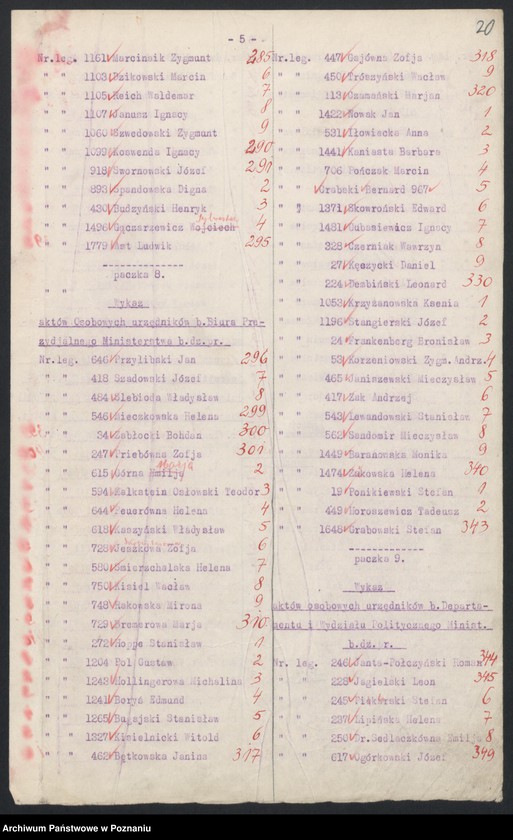 - 5 -
20
Nr.leg. 1161 Marciniak Zygmunt 285
" " 1103 Dzikowski Marcin 6
" " 1105 Reich Waldemar 7
" " 1107 Janusz Ignacy 8
" " 1060 Szwedowski Zygmunt 9
" " 1099 Koswenda Ignacy 290
" " 918 Swornowski Józef 291
" " 893 Spandowska Digna 2
" " 430 Budzyński Henryk 3
" " 1496 Gęczarzewicz Wojciech 4
" " 1779 Ast Ludwik 295
paczka 8.
Wykaz
aktów Osobowych urzędników b.Biura Pre-
zydjalnego Ministerstwa b.dz.pr.
Nr.leg. 646 Przylibski Jan 296
" " 418 Szadowski Józef 7
" " 484 Ślebioda Władysław 8
" " 546 Mieczkowska Helena 299
" " 34 Zabłocki Bohdan 300
" " 247 Triebówna Zofja 301
" " 615 Górna Emilja 2
" " 594 Kalkstein Osłowski Teodor 3
" " 644 Feuerówna Helena 4
" " 618 Kaszyński Władysław 5
" " 728 Jeszkowa Zofja 6
" " 580 Śmierzchalska Helena 7
" " 750 Kisiel Wacław 8
" " 748 Rakowska Mirona 9
" " 729 Bremerowa Marja 310
" " 272 Hoppe Stanisław 1
" " 1204 Pol Gustaw 2
" " 1243 Hollingerowa Michalina 3
" " 1241 Boryń Edmund 4
" " 1265 Bugajski Stanisław 5
" " 1327 Kisielnicki Witold 6
" " 462 Bętkowska Janina 317
Nr.leg. 447 Gajówna Zofja 318
" " 450 Trószyński Wacław 9
" " 113 Szamański Marjan 320
" " 1422 Nowak Jan 1
" " 531 Iłowiecka Anna 2
" " 1441 Kaniasta Barbara 3
" " 706 Pończak Marcin 4
" Grabski Bernard 967 5
" " 1371 Skowroński Edward 6
" " 1481 Łukasiewicz Ignacy 7
" " 328 Czerniak Wawrzyn 8
" " 27 Kęczycki Daniel 9
" " 224 Dembiński Leonard 330
" " 1053 Krzyżanowska Ksenia 1
" " 1196 Stangierski Józef 2
" " 24 Frankenberg Bronisław 3
" " 53 Korzeniowski Zygm.Andrz. 4
" " 465 Janiszewski Mieczysław 5
" " 417 Żak Andrzej 6
" " 543 Lewandowski Stanisław 7
" " 562 Sandomir Mieczysław 8
" " 1449 Barańowska Monika 9
" " 1474 Żukowska Helena 340
" " 19 Ponikiewski Stefan 1
" " 449 Horoszewicz Tadeusz 2
" " 1648 Grabowski Stefan 343
paczka 9.
Wykaz
aktów osobowych urzędników b.Departa-
mentu i Wydziału Politycznego Minist.
b.dz.pr.
Nr.leg. 246 Janta-Połczyński Roman 344
" " 228 Jagielski Leon 345
" " 245 Piekarski Stefan 6
" " 237 Lipińska Helena 7
" " 250 Dr.Sedlaczkówna Emilja 8
" " 617 Ogórkowski Józef 349
Archiwum Państwowe w Poznaniu